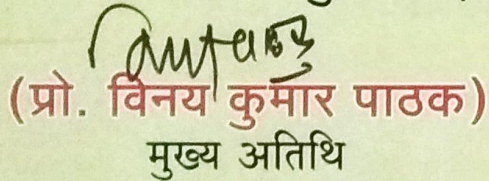 (प्रो. विनय कुमार पाठक)
मुख्य अतिथि